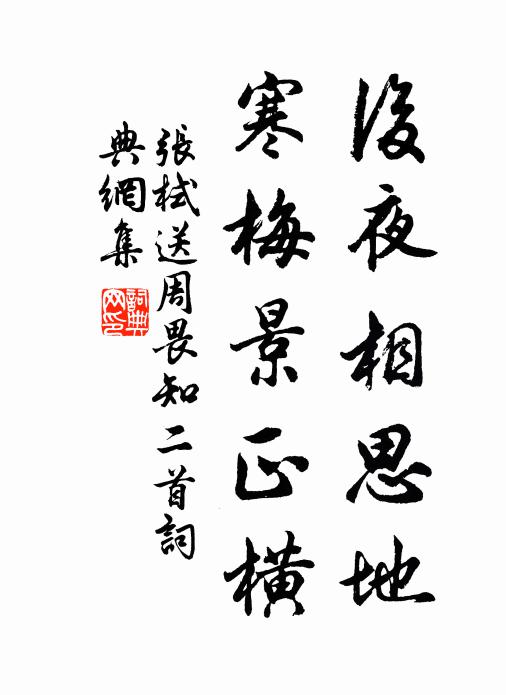 後夜相思地
寒梅景正橫
張栻送周畏知二首詞
典網集
詞典
網印